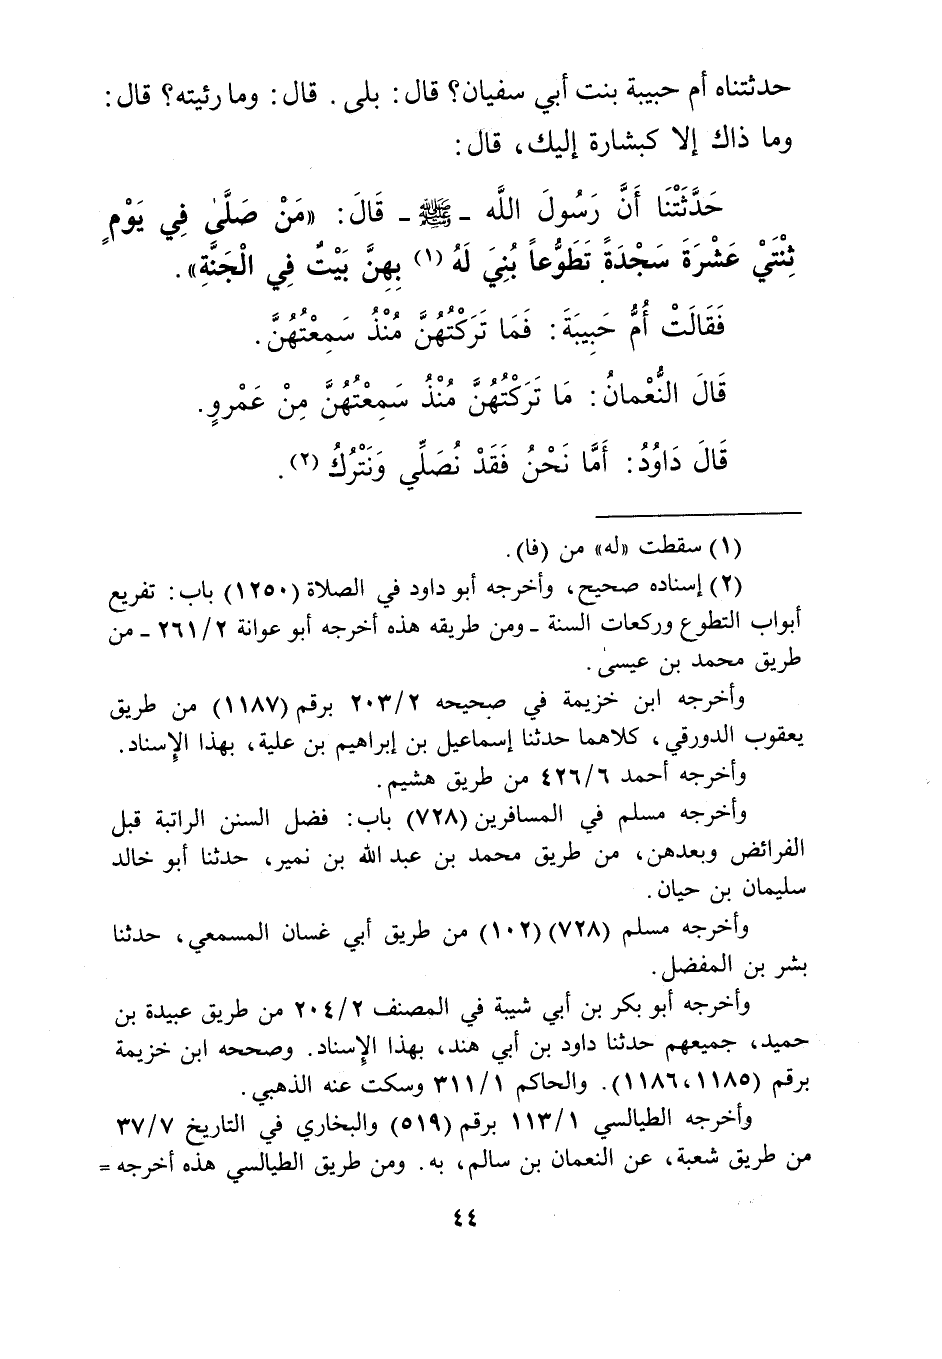 حدثتناه أم حبيبة بنت أبي سفيان؟ قال: بلى. قال: وما رئيته؟ قال:
وما ذاك إلا كبشارة إليك، قال:
حَدَّثَتْنَا أَنَّ رَسُولَ اللَّه - ﷺ - قَالَ: «مَنْ صَلَّىٰ فِي يَوْمٍ
ثِنْتَيْ عَشْرَةَ سَجْدَةً تَطَوُّعاً بُنِيَ لَهُ (١) بِهِنَّ بَيْتٌ فِي الْجَنَّةِ».
فَقَالَتْ أُمُّ حَبِيبَةَ: فَمَا تَرَكْتُهُنَّ مُنْذُ سَمِعْتُهُنَّ.
قَالَ النُّعْمانُ: مَا تَرَكْتُهُنَّ مُنْذُ سَمِعْتُهُنَّ مِنْ عَمْرٍو.
قَالَ دَاوُدُ: أَمَّا نَحْنُ فَقَدْ نُصَلِّي وَنَتْرُكُ (٢).
(١) سقطت «له» من (فا).
(٢) إسناده صحيح، وأخرجه أبو داود في الصلاة (١٢٥٠) باب: تفريع
أبواب التطوع وركعات السنة - ومن طريقه هذه أخرجه أبو عوانة ٢٦١/٢ - من
طريق محمد بن عيسىٰ.
وأخرجه ابن خزيمة في صحيحه ٢٠٣/٢ برقم (١١٨٧) من طريق
يعقوب الدورقي، كلاهما حدثنا إسماعيل بن إبراهيم بن علية، بهذا الإسناد.
وأخرجه أحمد ٤٢٦/٦ من طريق هشيم.
وأخرجه مسلم في المسافرين (٧٢٨) باب: فضل السنن الراتبة قبل
الفرائض وبعدهن، من طريق محمد بن عبد الله بن نمير، حدثنا أبو خالد
سليمان بن حيان.
وأخرجه مسلم (٧٢٨) (١٠٢) من طريق أبي غسان المسمعي، حدثنا
بشر بن المفضل.
وأخرجه أبو بكر بن أبي شيبة في المصنف ٢٠٤/٢ من طريق عبيدة بن
حميد، جميعهم حدثنا داود بن أبي هند، بهذا الإسناد. وصححه ابن خزيمة
برقم (١١٨٥، ١١٨٦). والحاكم ٣١١/١ وسكت عنه الذهبي.
وأخرجه الطيالسي ١١٣/١ برقم (٥١٩) والبخاري في التاريخ ٣٧/٧
من طريق شعبة، عن النعمان بن سالم، به. ومن طريق الطيالسي هذه أخرجه =
٤٤